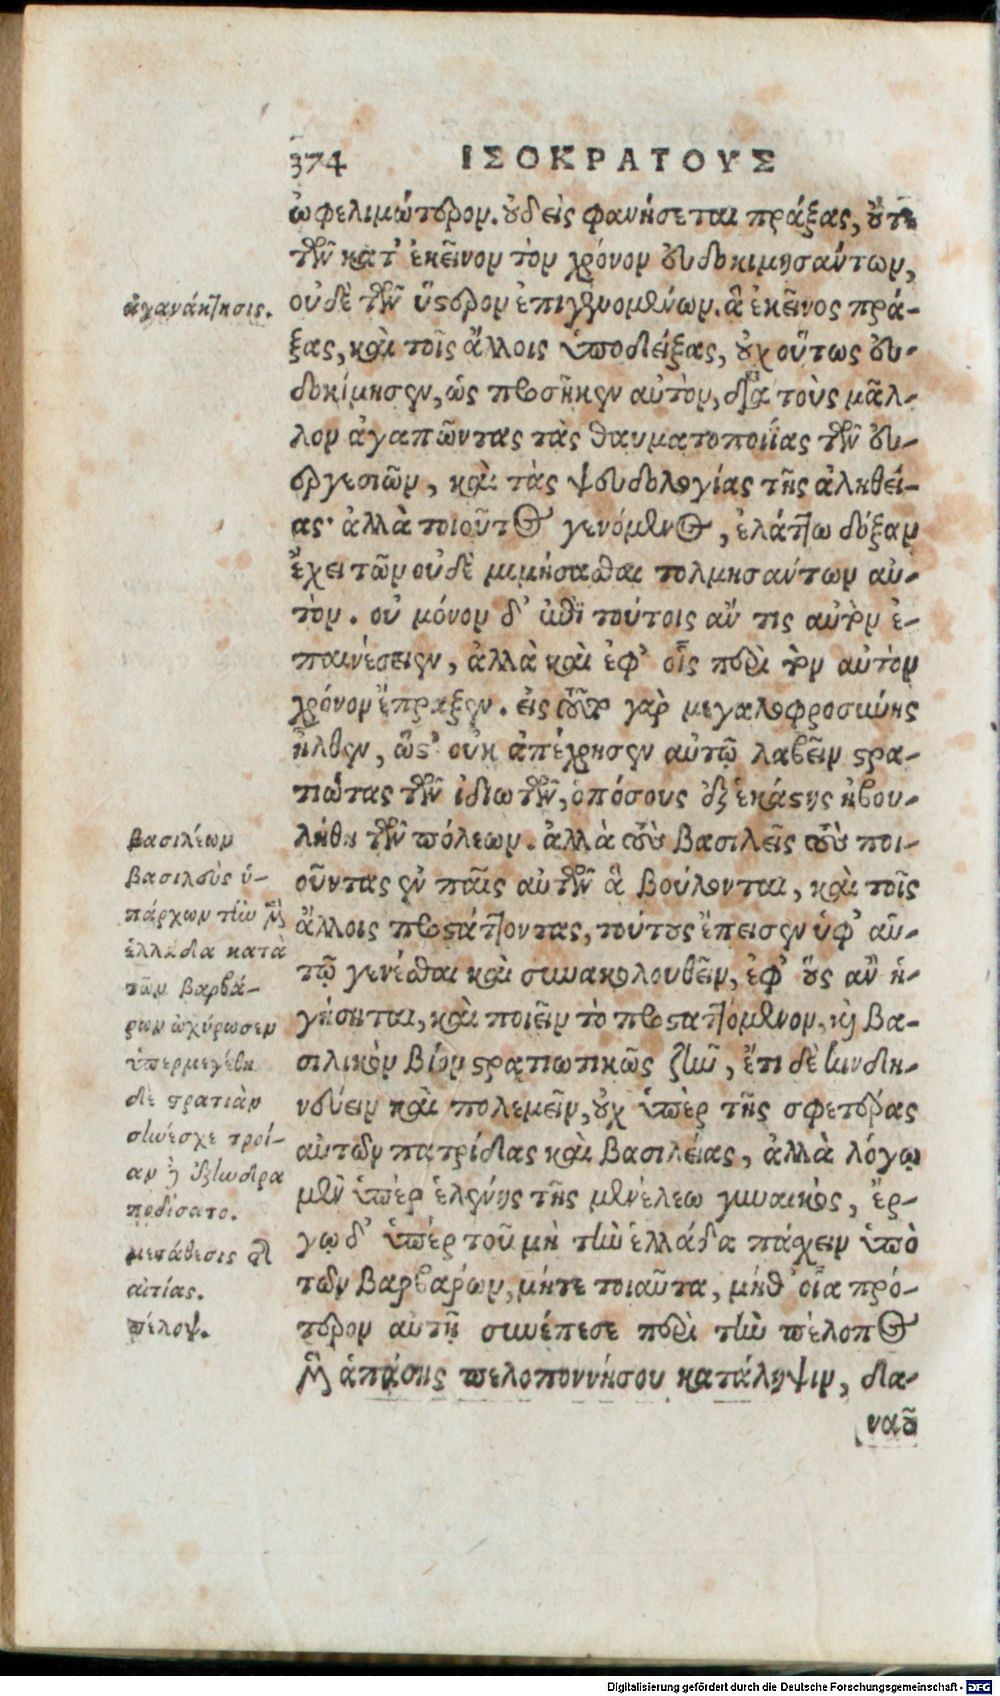 374 ΙΣΟΚΡΑΤΟΥΣ
ὠφελιμώτερον. οὐδεὶς φανήσεται πράξας, οὔτε
τῶν κατ' ἐκεῖνον τὸν χρόνον εὐδοκιμησάντων,
οὐδὲ τῶν ὕστερον ἐπιγενομένων. ἃ ἐκεῖνος πρά-
ξας, καὶ τοῖς ἄλλοις ὑποδείξας, οὐχ οὕτως εὐ-
δοκίμησεν, ὡς προσῆκεν αὐτὸν, διὰ τοὺς μᾶλ-
λον ἀγαπῶντας τὰς θαυματοποιΐας τῶν εὐ-
εργεσιῶν, καὶ τὰς ψευδολογίας τῆς ἀληθεί-
ας· ἀλλὰ τοιοῦτος γενόμενος, ἐλάττω δόξαν
ἔχει τῶν οὐδὲ μιμήσασθαι τολμησάντων αὐ-
τόν. οὐ μόνον δ' ἐπὶ τούτοις ἄν τις αὐτὸν ἐ-
παινέσειεν, ἀλλὰ καὶ ἐφ' οἷς περὶ τὸν αὐτὸν
χρόνον ἔπραξεν. εἰς τοῦτο γὰρ μεγαλοφροσύνης
ἦλθεν, ὥστ' οὐκ ἀπέχρησεν αὐτῷ λαβεῖν στρα-
τιώτας τῶν ἰδιωτῶν, ὁπόσους ἐξ ἑκάστης ἠβου-
λήθη τῶν πόλεων. ἀλλὰ τοὺς βασιλεῖς τοὺς ποι-
οῦντας ἐν ταῖς αὑτῶν ἃ βούλονται, καὶ τοῖς
ἄλλοις προστάττοντας, τούτους ἔπεισεν ὑφ' αὑ-
τῷ γενέσθαι καὶ συνακολουθεῖν, ἐφ' οὓς ἂν ἡ-
γήσηται, καὶ ποιεῖν τὸ προσταττόμενον, καὶ βα-
σιλικὸν βίον στρατιωτικῶς ζῆν, ἔτι δὲ κινδυ-
νεύειν καὶ πολεμεῖν, οὐχ ὑπὲρ τῆς σφετέρας
αὐτῶν πατρίδας καὶ βασιλείας, ἀλλὰ λόγῳ
μὲν ὑπὲρ ἑλένης τῆς μενέλεω γυναικὸς, ἔρ-
γῳ δ' ὑπὲρ τοῦ μὴ τὴν ἑλλάδα πάσχειν ὑπὸ
τῶν βαρβάρων, μήτε τοιαῦτα, μήθ' οἷα πρό-
τερον αὐτῇ συνέπεσε περὶ τὴν πέλοπος
τῆς ἁπάσης πελοποννήσου κατάληψιν, δα-
ναοῦ
ἀγανάκτησις.
βασιλέων
βασιλεὺς ὑ-
πάρχων τὴν
ἑλλάδα κατὰ
τῶν βαρβά-
ρων ὠχύρωσεν
ὑπερμεγέθη
δὲ στρατιὰν
συνέσχε τροί-
αν
ποδίσατο.
μετάθεσις
αἰτίας.
πέλοψ.
Digitalisierung gefördert durch die Deutsche Forschungsgemeinschaft - DFG